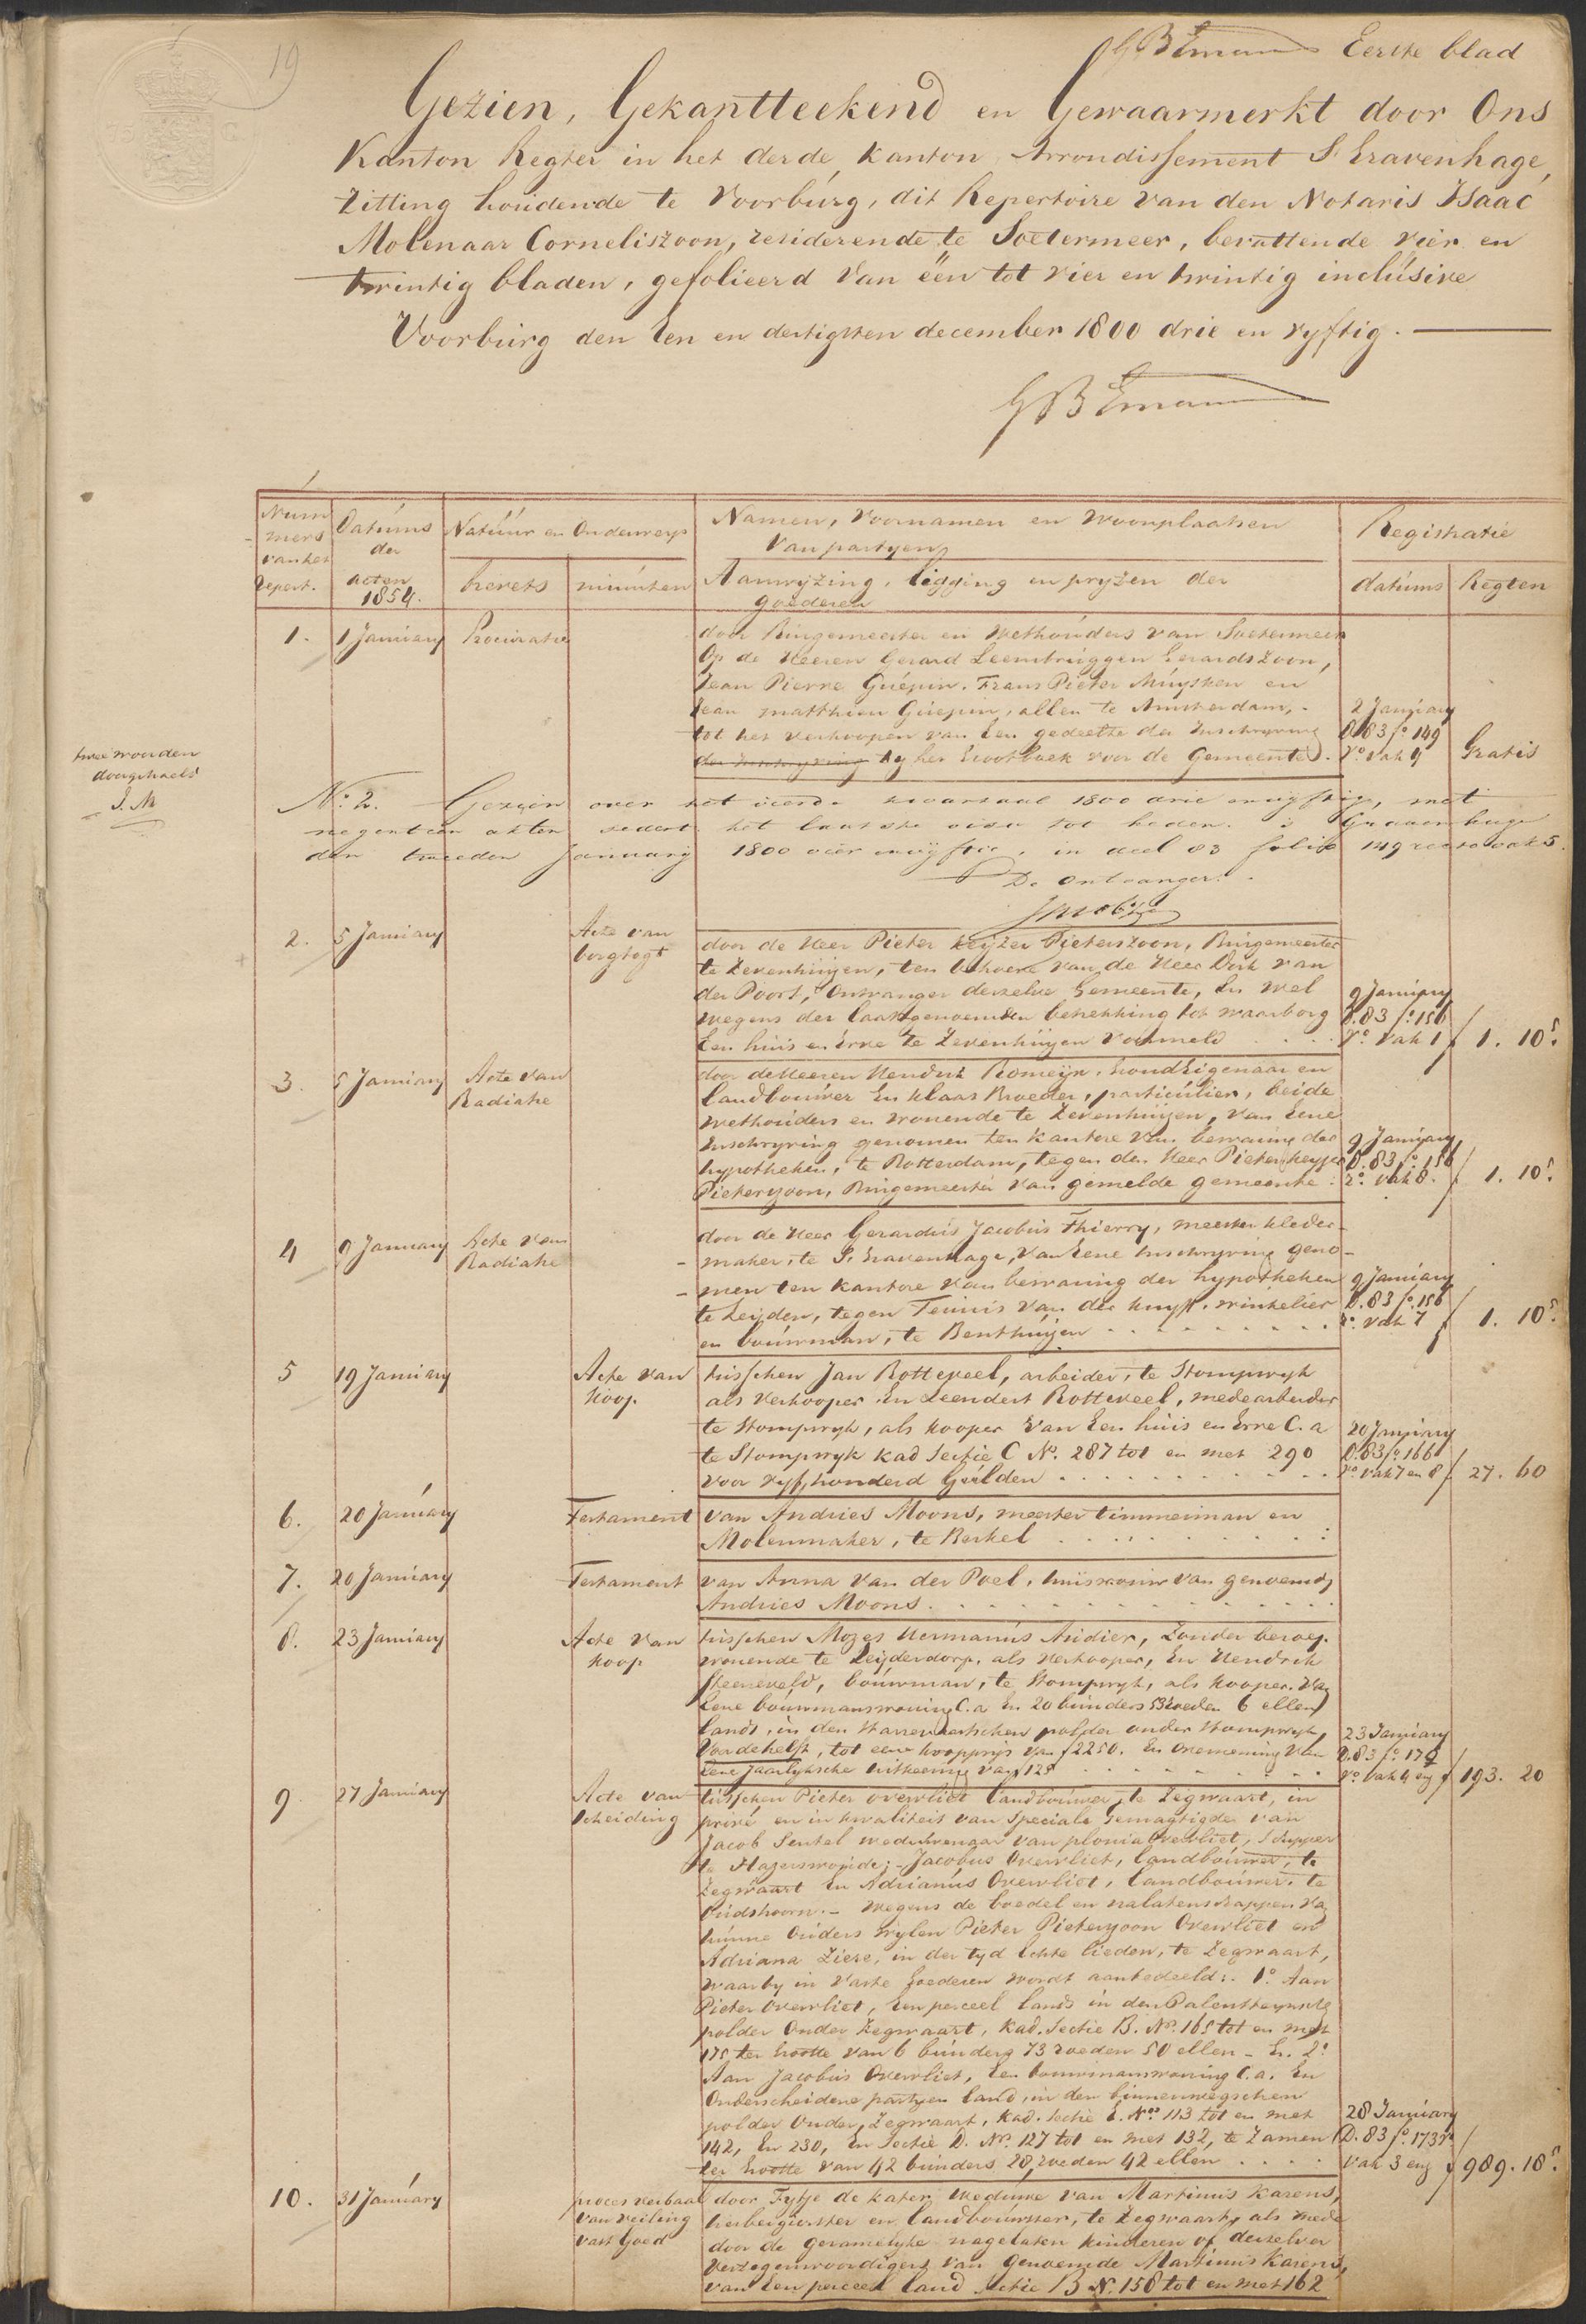 19
GB Eman Eerste blad
Gezien, Gekantteekend en Gewaarmerkt door Ons
Kanton Regter in het derde kanton Arrondissement S Gravenhage,
Zitting houdende te Voorburg, dit Repertoire van den Notaris Isaac
Molenaar Corneliszoon, residerende te Soetermeer, bevattende vier en
twintig bladen, gefolieerd van één tot vier en twintig inclusive
Voorburg den Een en dertigsten december 1800 drie en vyftig.
GB Eman
Num
mers
van het
Repert.
Datums
der
acten
1854.
Natuur en Onderwerp
brevets
minuten
Namen, Voornamen en Woonplaatsen
Van partyen
Aanwyzing, ligging en pryzen der
goederen
Registratie
datums
Regten
1. 1 January Procuratie
door Burgemeester en Wethouders van Soetermeer
Op de Heeren Gerard Leembruggen Gerardszoon,
Jean Pierre Guépin, Frans Pieter Muysken en
Jean Matthieu Guépin, allen te Amsterdam,
tot het verkoopen van Een gedeelte der Inschryving
der Inschryving by het Grootboek voor de Gemeente.
2 January
D 83 fo 149
ro vak 4 Gratis
twee woorden
doorgehaald
I. M
No. 2. Gezien over het vierde kwartaal 1800 drie envyftig, met
negentien akten sedert het laatste visa tot heden. s Gravenhage
den tweeden January 1800 vier envyftig, in deel 83 folio 149 recto vak 5.
De Ontvanger.
2. 5 January Acte van
borgtogt
door de Heer Pieter Keyzer Pieterszoon, Burgemeester
te Zevenhuijzen, ten behoeve van de Heer Dirk van
der Poort, Ontvanger derzelve Gemeente, En wel
wegens der laastgenoemden betrekking tot waarborg
Een huis en Erve te Zevenhuijzen voormeld
9 January
D. 83 fo 156
ro vak 1 f 1. 10 5
3. 5 January Acte van
Radiatie
door de Heeren Hendrik Romeijn, Grondeigenaar en
landbouwer En Klaas Broeder, particulier, beide
wethouders en wonende te Zevenhuijzen, van Eene
Inschryving genomen ten kantore van bewaring der
hypotheken, te Rotterdam, tegen den Heer Pieter Keyzer
Pieterszoon, Burgemeester van gemelde gemeente
9 January
D. 83 fo 156
ro vak 8. f 1. 10 5
4 9 January Acte van
Radiatie
door de Heer Gerardus Jacobus Thierry, meester kleder-
maker, te S. Gravenhage, van Eene Inschryving geno-
men ten kantore van bewaring der hypotheken
te Leyden, tegen Teunis van der Kuyl, winkelier
en bouwman, te Benthuijzen
9 January
D. 83 fo. 156
ro. vak 7 f 1. 10 5
5 19 January Acte van
koop.
tusschen Jan Rotteveel, arbeider, te Stompwyk
als verkooper En Leendert Rotteveel, mede arbeider
te Stompwyk, als kooper van Een huis en Erve C. a
te Stompwyk kad Sectie C No. 287 tot en met 290
voor vyfhonderd Gulden
20 January
D. 83 fo 166
ro vak 7 en 8 f 27. 60
6. 20 January Testament van Andries Moons, meester timmerman en
Molenmaker, te Berkel
7. 20 January Testament van Anna van der Poel, huisvrouw van genoemde
Andries Moons.
8. 23 January Acte van
koop
tusschen Mozes Hermanus Audier, zonder beroep.
wonende te Leyderdorp, als verkooper, En Hendrik
Steeneveld, bouwman, te Stompwyk, als kooper. Van
Eene bouwmanswoning C. a En 20 bunders 53 roeden 6 ellen
lands, in den Starrevaartschen polder onder Stompwyk,
Voor de helft, tot eene koopprijs van f 2250. En Overneming van
Eene Jaarlyksche uitkeering van f 125
23 January
D. 83 fo 170
ro vak 4 en f 193. 20
9 27 January Acte van
scheiding
tusschen Pieter Overvliet landbouwer, te Zegwaart, in
privé, en in kwaliteit van speciale gemagtigde van
Jacob Sentel weduwenaar van Plonia Overvliet, Schipper
te Hazerswoude; - Jacobus Overvliet, landbouwer, te
Zegwaart En Adrianus Overvliet, landbouwer, te
Oudshoorn. - Wegens de boedel en nalatenschappen van
hunne Ouders wylen Pieter Pieterszoon Overvliet en
Adriana Ziere, in der tyd Echte lieden, te Zegwaart,
waarby in Vaste Goederen wordt aanbedeeld: 1o. Aan
Pieter Overvliet, Een perceel lands in den Palensteynsche
polder Onder Zegwaart, kad. Sectie B. No. 165 tot en met
175 ter Grootte van 6 bunders 73 roeden 50 ellen - En. 2o
Aan Jacobus Overvliet, Een bouwmanswoning C. a. En
Onderscheidene partyen land, in den binnenwegschen
polder Onder Zegwaart, kad. Sectie E. Nos 113 tot en met
142, En 230, En Sectie D. No. 127 tot en met 132, te Zamen
ter Grootte van 42 bunders 28 roeden 42 ellen
28 January
D. 83 fo. 173
vak 3 en f 989. 18 5
10. 31 January proces verbaal
van veiling
vast Goed
door Fytje de Kater, weduwe van Martinus Karens,
herbergierster en landbouwster, te Zegwaart, als mede
door de gezamelyke nagelaten kinderen of derzelver
vertegenwoordigers van genoemde Martinus Karens,
van Een perceel land Sectie B No. 158 tot en met 162